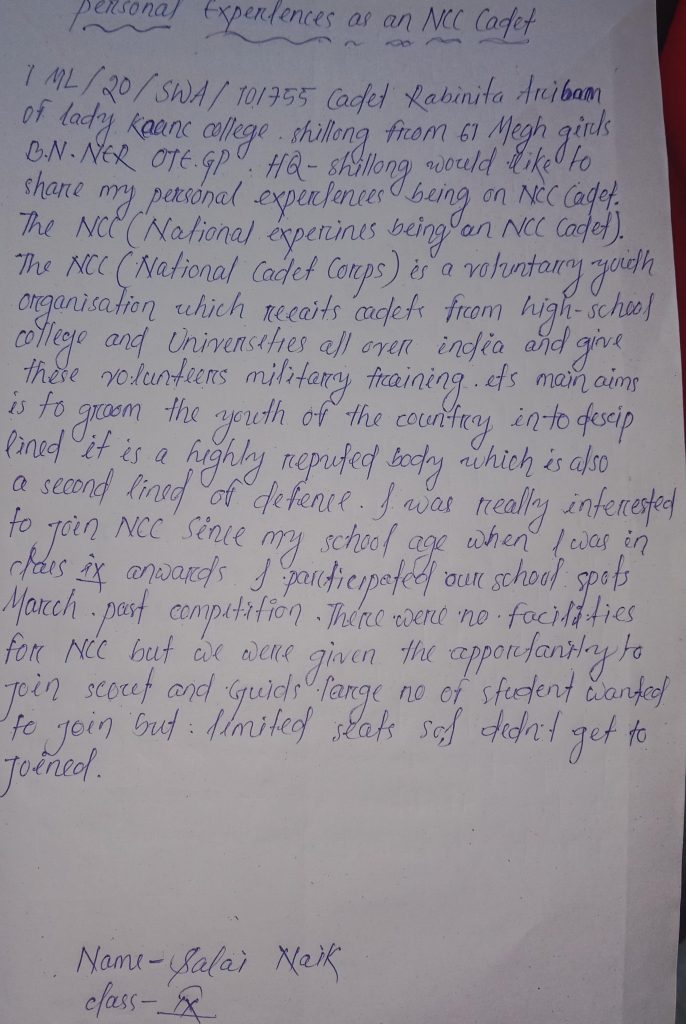 personal Experlences as an NCC Cadet
I ML/20/SWA/101755 Cadet Rabinita Aribam
of lady Kaanc college. shillong from 61 Megh girls
B.N. NER OTE.GP. HQ- shillong would like to
share my personal experlences being on NCC Cadet.
The NCC (National experines being an NCC Cadet).
The NCC (National Cadet Corps) is a voluntarry youth
organisation which receaits cadets from high-school
college and Universeties all over india and give
these volunteers militarry training. its main aims
is to groom the youth of the countrry into descip
lined it is a highly reputed body which is also
a second lined of defence. I was really interested
to join NCC Since my school age when I was in
class ix anwards I participated our school spots
March. past compitition. There were no. facilities
for NCC but we were given the apportanitry to
join scout and Guids large no of student wanted
to join but. limited seats so I dedn't get to
joined.
Name- Salai Naik
class- IX